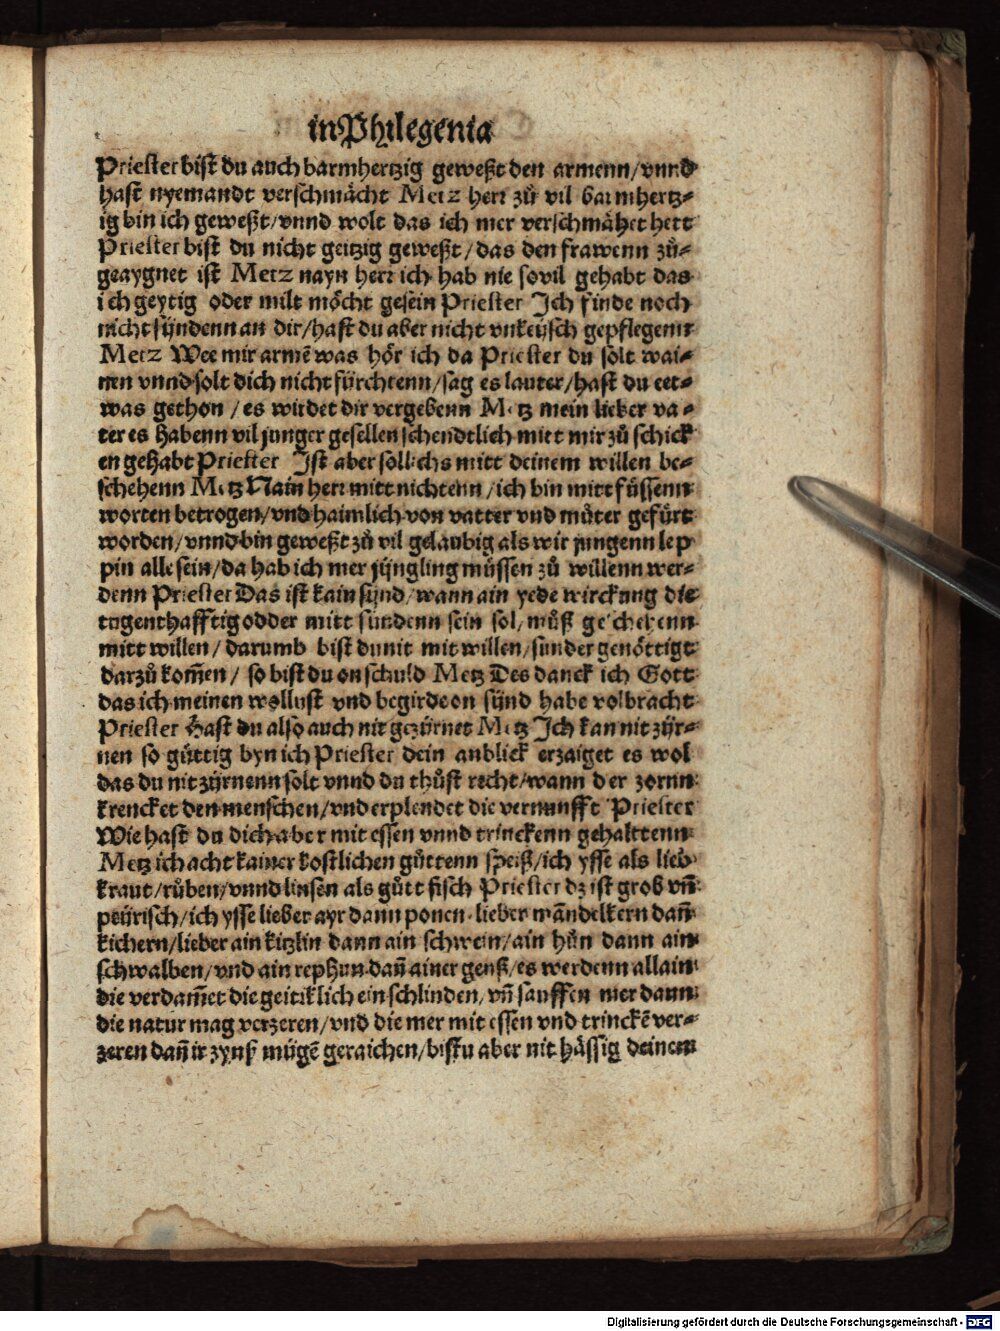 in Philegenia
Priester bist du auch barmhertzig geweßt den armenn/vnnd
hast nyemandt verschmächt Metz herr zů vil barmhertz⸗
ig bin ich geweßt/vnnd wolt das ich mer verschmähet hett
Priester bist du nicht geitzig geweßt/das den frawenn zů⸗
geaygnet ist Metz nayn herr ich hab nie sovil gehabt das
ich geytig oder milt möcht gesein Priester Ich finde noch
nicht sündenn an dir/hast du aber nicht vnkeüsch gepflegenn
Metz Wee mir armē was hör ich da Priester du solt wai⸗
nen vnnd solt dich nicht fürchtenn/sag es lauter/hast du eet⸗
was gethon/es wirdet dir vergebenn Metz mein lieber va⸗
ter es habenn vil junger gesellen schendtlich mitt mir zů schick
en gehabt Priester Ist aber söllichs mitt deinem willen be⸗
schehenn Metz Nain herr mitt nichtenn/ich bin mitt füssenn
worten betrogen/vnd haimlich von vatter vnd můter gefürt
worden/vnnd bin geweßt zů vil gelaubig als wir jungenn lep
pin alle sein/da hab ich mer jüngling müssen zů willenn wer⸗
denn Priester Das ist kain sünd/wann ain yede wirckung die
tugenthafftig odder mitt sündenn sein sol/můß geschehenn
mitt willen/darumb bist du nit mit willen/sunder genöttigt
darzů kom̄en/so bist du on schuld Metz Des danck ich Gott
das ich meinen wollust vnd begirde on sünd habe volbracht
Priester Hast du also auch nit gezürnet Metz Ich kan nit zür⸗
nen so güttig byn ich Priester dein anblick erzaiget es wol
das du nit zürnenn solt vnnd du thůst recht/wann der zornn
krencket den menschen/vnd erplendet die vernunfft Priester
Wie hast du dich aber mit essen vnnd trinckenn gehalttenn
Metz ich acht kainer kostlichen gůttenn speiß/ich ysse als lieb
kraut/růben/vnnd linsen als gůtt fisch Priester dz ist grob vn̄
peürisch/ich ysse lieber ayr dann ponen lieber mandelkern dan̄
kichern/lieber ain kitzlin dann ain schwein/ain hůn dann ain
schwalben/vnd ain rephun dan̄ ainer genß/es werdenn allain
die verdam̄et die geitiklich einschlinden/vn̄ sauffen mer dann
die natur mag verzeren/vnd die mer mit essen vnd trinckē ver⸗
zeren dan̄ ir zynß mügē geraichen/bistu aber nit hässig deinem
Digitalisierung gefördert durch die Deutsche Forschungsgemeinschaft - DFG